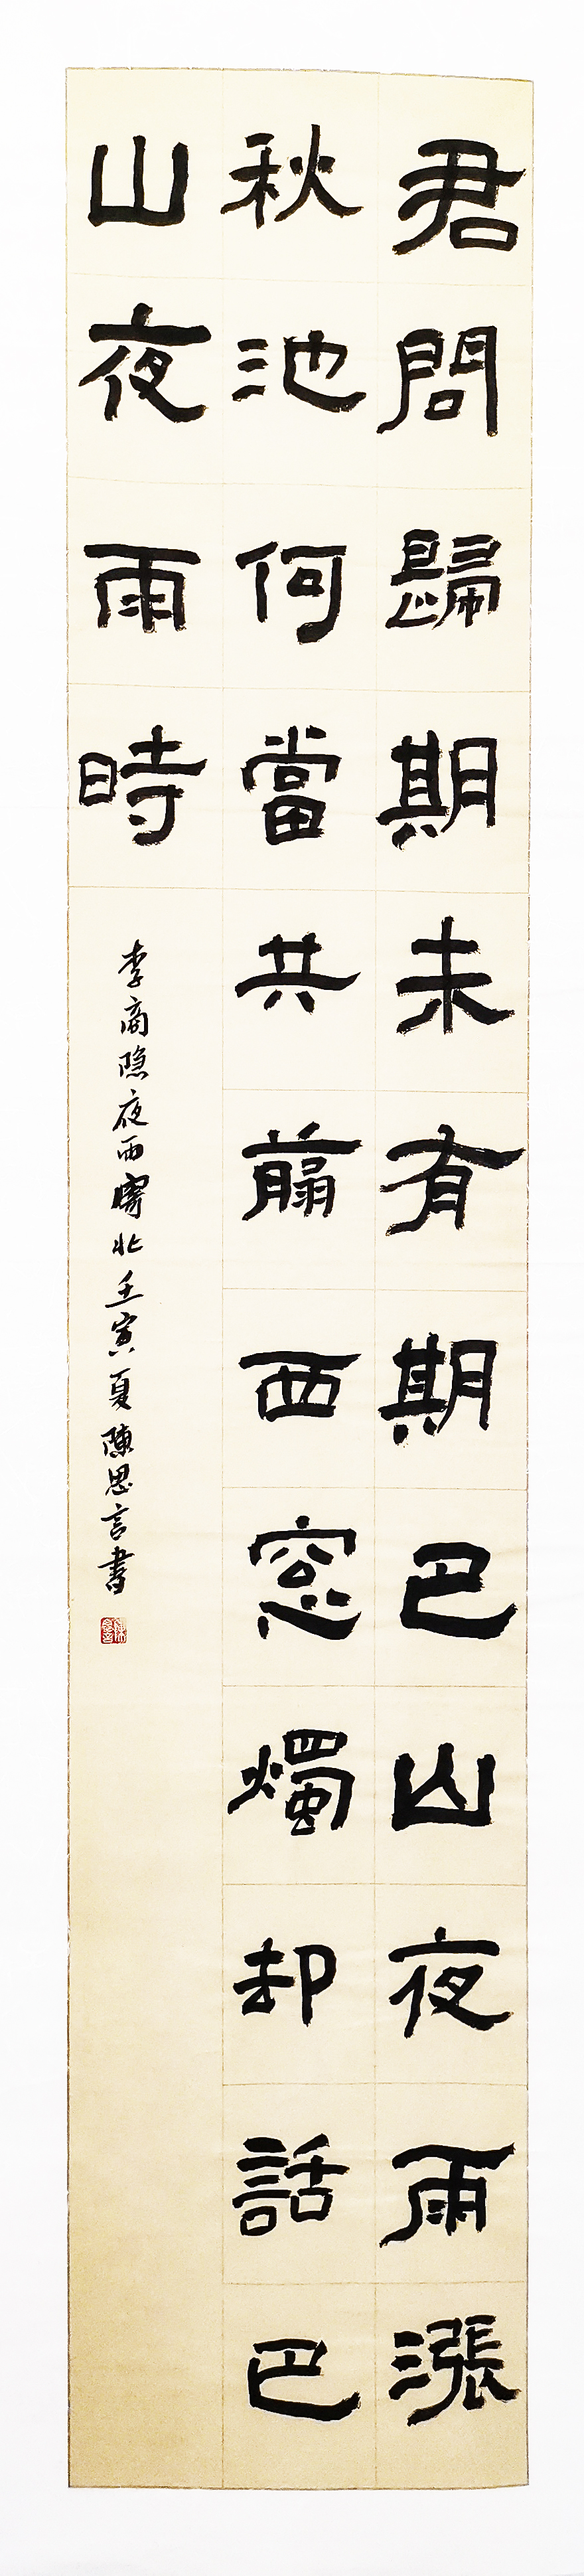 君問歸期未有期巴山夜雨漲
秋池何當共翦西窓燭却話巴
山夜雨時
李商隐夜雨寄北壬寅夏陳思言書